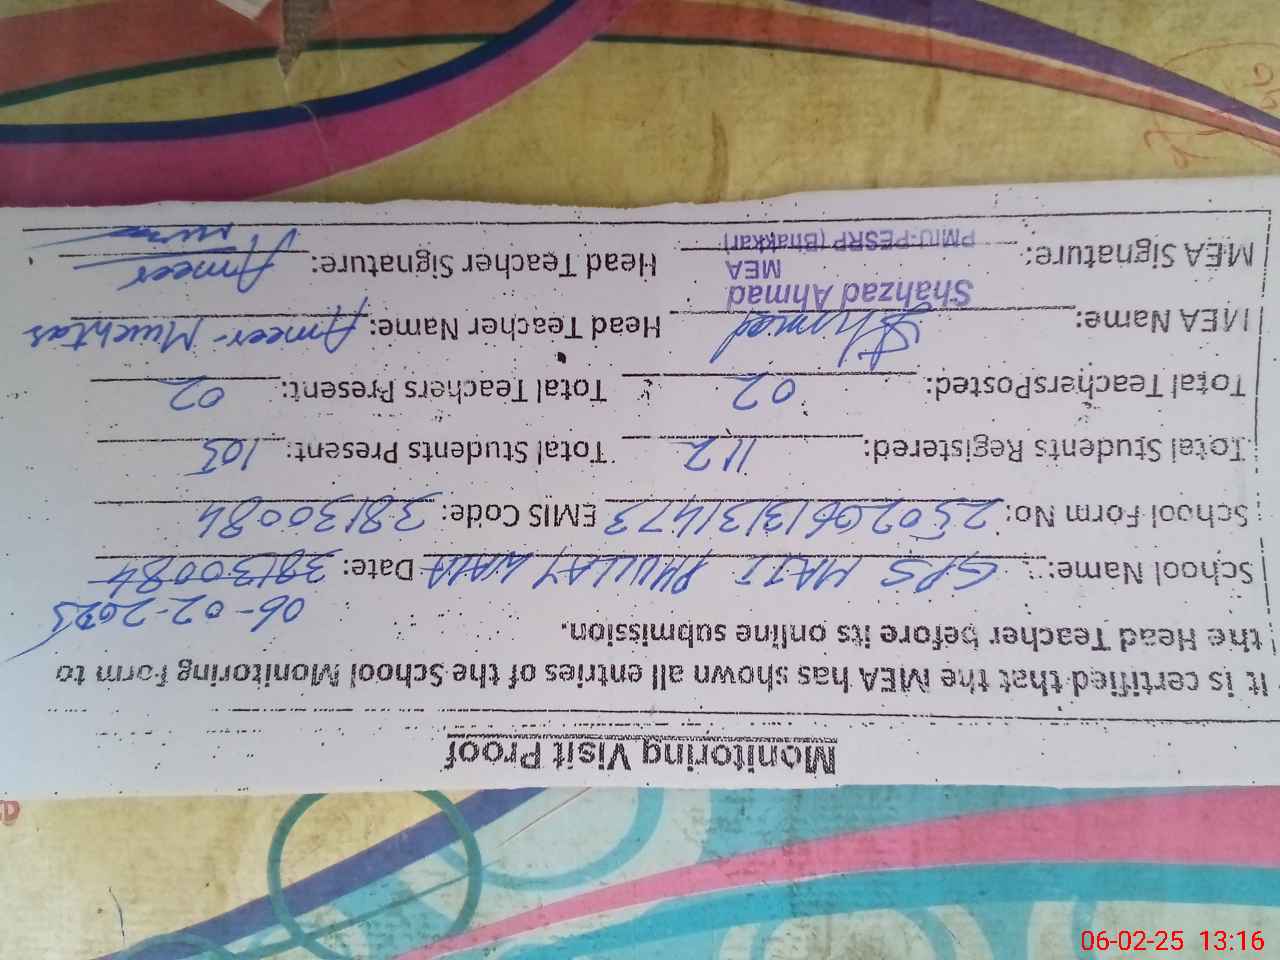 Monitoring Visit Proof
It is certified that the MEA has shown all entries of the School Monitoring Form to
the Head Teacher before its online submission.
06-02-2025
School Name: GPS HAJI PHULLAY WALA Date: 38130084
School Form No: 25020613131473 EMIS Code: 38130084
Total Students Registered: 112 Total Students Present: 105
Total TeachersPosted: 02 Total Teachers Present: 02
MEA Name: Head Teacher Name: Ameer Mukhtar
Shahzad Ahmad
MEA
MEA Signature: PMIU-PESRP (Bhakkar) Head Teacher Signature: Ameer
06-02-25 13:16